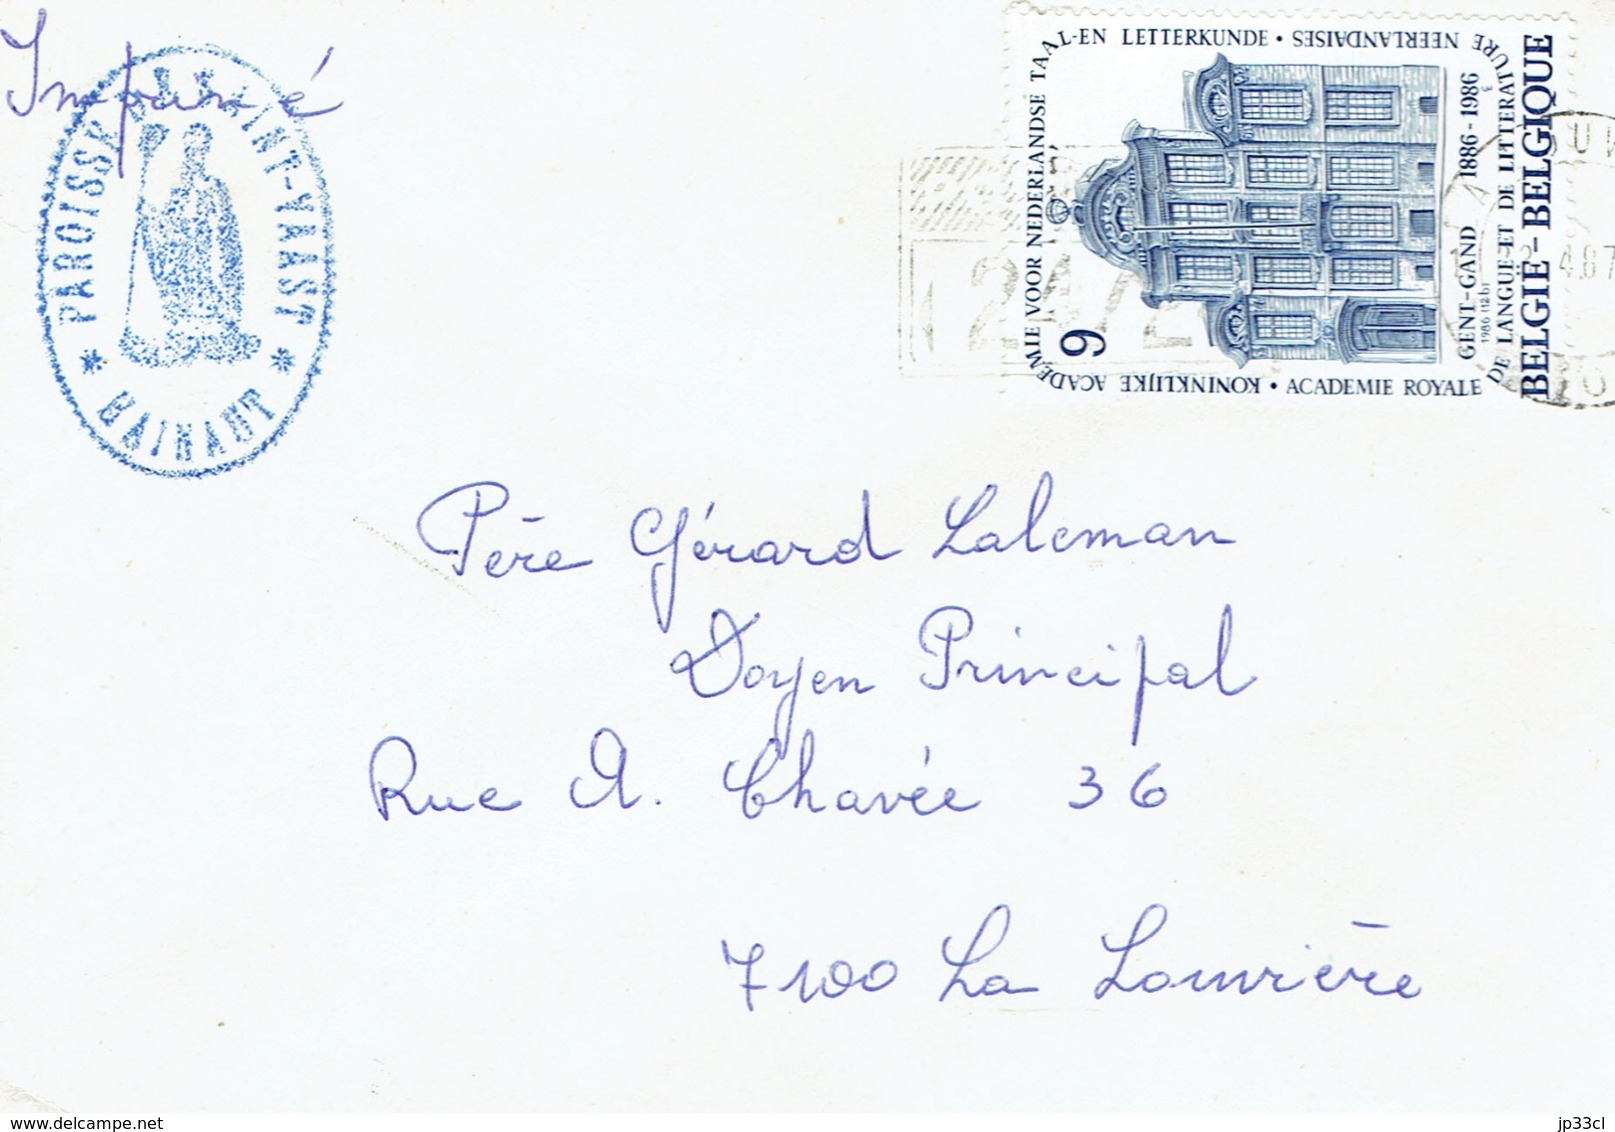 Imprimé
PAROISSE SAINT-VAAST
* HAINAUT *
KONINKLIJKE ACADEMIE VOOR NEDERLANDSE TAAL-EN LETTERKUNDE • ACADEMIE ROYALE DE LANGUE ET DE LITTERATURE NEERLANDAISES
GENT-GAND 1886-1986
1986 (12) b1
BELGIË-BELGIQUE
9
4.87
Père Gérard Laleman
Doyen Principal
Rue A. Chavée 36
7100 La Louvière
delcampe.net
jp33cl